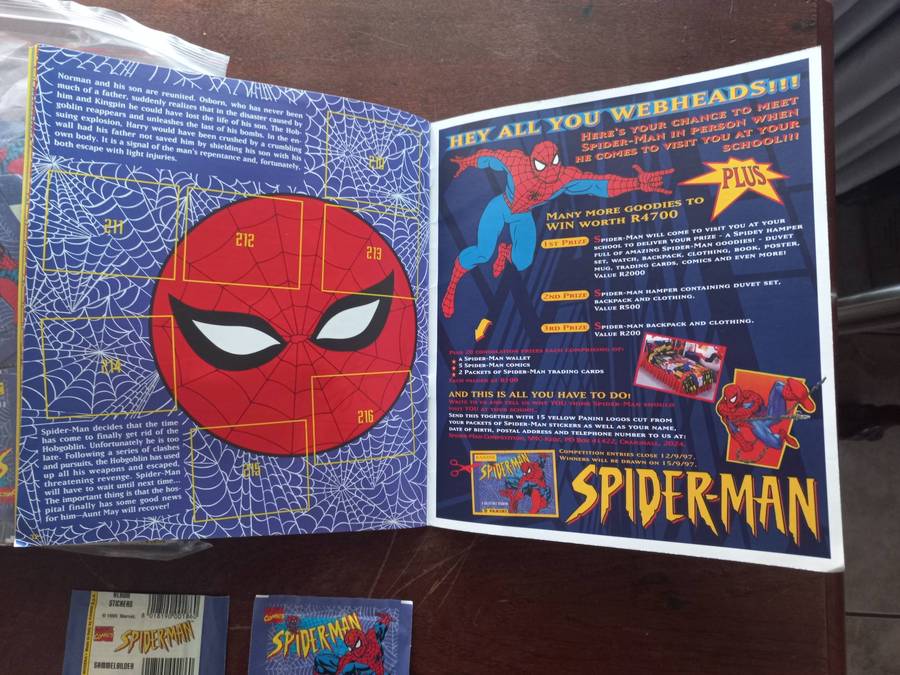 Norman and his son are reunited. Osborn, who has never been
much of a father, suddenly realizes that in the disaster caused by
him and Kingpin he could have lost the life of his son. The Hob-
goblin reappears and unleashes the last of his bombs. In the en-
suing explosion, Harry would have been crushed by a crumbling
wall had his father not saved him by shielding his son with his
own body. It is a signal of the man's repentance and, fortunately,
both escape with light injuries.
210
211
212
213
214
216
215
Spider-Man decides that the time
has come to finally get rid of the
Hobgoblin. Unfortunately he is too
late. Following a series of clashes
and pursuits, the Hobgoblin has used
up all his weapons and escaped,
threatening revenge. Spider-Man
will have to wait until next time...
The important thing is that the hos-
pital finally has some good news
for him—Aunt May will recover!
HEY ALL YOU WEBHEADS!!!
HERE'S YOUR CHANCE TO MEET
SPIDER-MAN IN PERSON WHEN
HE COMES TO VISIT YOU AT YOUR
SCHOOL!!!
PLUS
MANY MORE GOODIES TO
WIN WORTH R4700
1ST PRIZE
SPIDER-MAN WILL COME TO VISIT YOU AT YOUR
SCHOOL TO DELIVER YOUR PRIZE - A SPIDEY HAMPER
FULL OF AMAZING SPIDER-MAN GOODIES! - DUVET
SET, WATCH, BACKPACK, CLOTHING, BOOK, POSTER,
MUG, TRADING CARDS, COMICS AND EVEN MORE!
VALUE R2000
2ND PRIZE
SPIDER-MAN HAMPER CONTAINING DUVET SET,
BACKPACK AND CLOTHING.
VALUE R500
3RD PRIZE
SPIDER-MAN BACKPACK AND CLOTHING.
VALUE R200
PLUS 20 CONSOLATION PRIZES EACH COMPRISING OF:
A SPIDER-MAN WALLET
5 SPIDER-MAN COMICS
2 PACKETS OF SPIDER-MAN TRADING CARDS
EACH VALUED AT R100
AND THIS IS ALL YOU HAVE TO DO!
WRITE TO US AND TELL US WHY YOU THINK SPIDER-MAN SHOULD
VISIT YOU AT YOUR SCHOOL.
SEND THIS TOGETHER WITH 15 YELLOW PANINI LOGOS CUT FROM
YOUR PACKETS OF SPIDER-MAN STICKERS AS WELL AS YOUR NAME,
DATE OF BIRTH, POSTAL ADDRESS AND TELEPHONE NUMBER TO US AT:
SPIDER-MAN COMPETITION, SMC-KIDZ, PO BOX 41422, CRAIGHALL, 2024.
COMPETITION ENTRIES CLOSE 12/9/97.
WINNERS WILL BE DRAWN ON 15/9/97.
PANINI
SPIDER-MAN
PANINI
SPIDER-MAN
ALBUM
STICKERS
© 1995 Marvel.
COMICS
SPIDER-MAN
SAMMELBILDER
COMICS
SPIDER-MAN